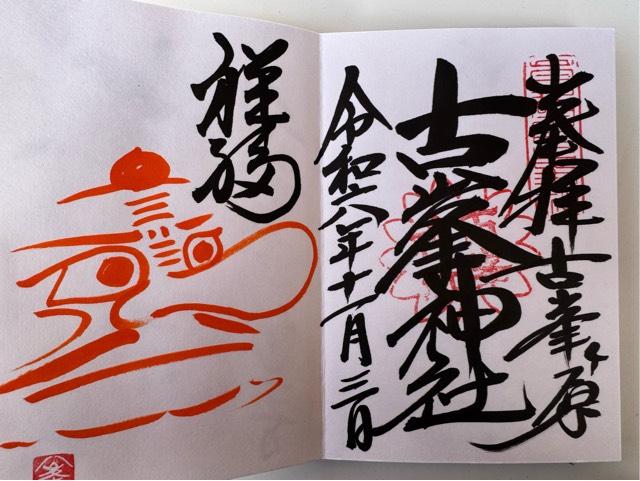 奉拝 古峯ヶ原
古峯神社
令和六年十一月三日
祥福